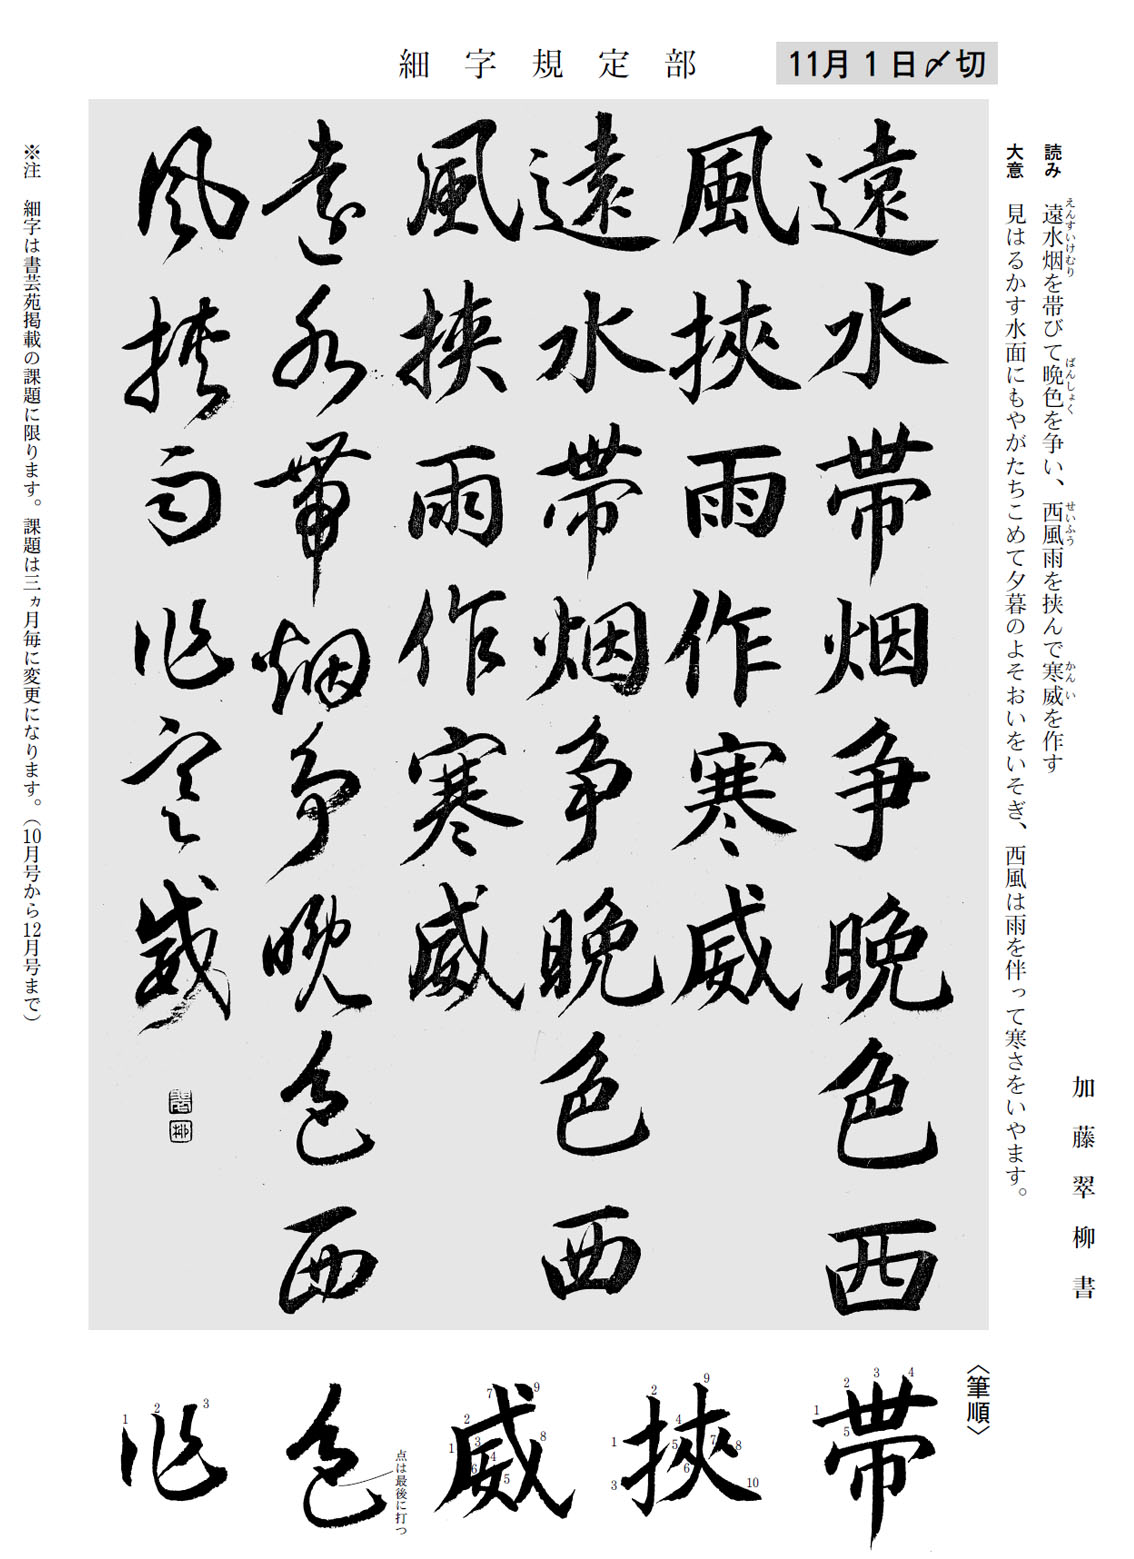 細字規定部
11月1日〆切
読み 遠水烟を帯びて晩色を争い、西風雨を挟んで寒威を作す
えんすいけむり ばんしょく せいふう かんい
大意 見はるかす水面にもやがたちこめて夕暮のよそおいをいそぎ、西風は雨を伴って寒さをいやます。
加藤翠柳書
遠水帯烟争晩色西
風挾雨作寒威
遠水帯烟争晩色西
風挾雨作寒威
遠水帯烟争晩色西
風挾雨作寒威
※注 細字は書芸苑掲載の課題に限ります。課題は三ヵ月毎に変更になります。(10月号から12月号まで)
〈筆順〉
帯
1 2 3 4 5
挾
1 2 3 4 5 6 7 8 9 10
威
1 2 3 4 5 6 7 8 9
色
点は最後に打つ
作
1 2 3